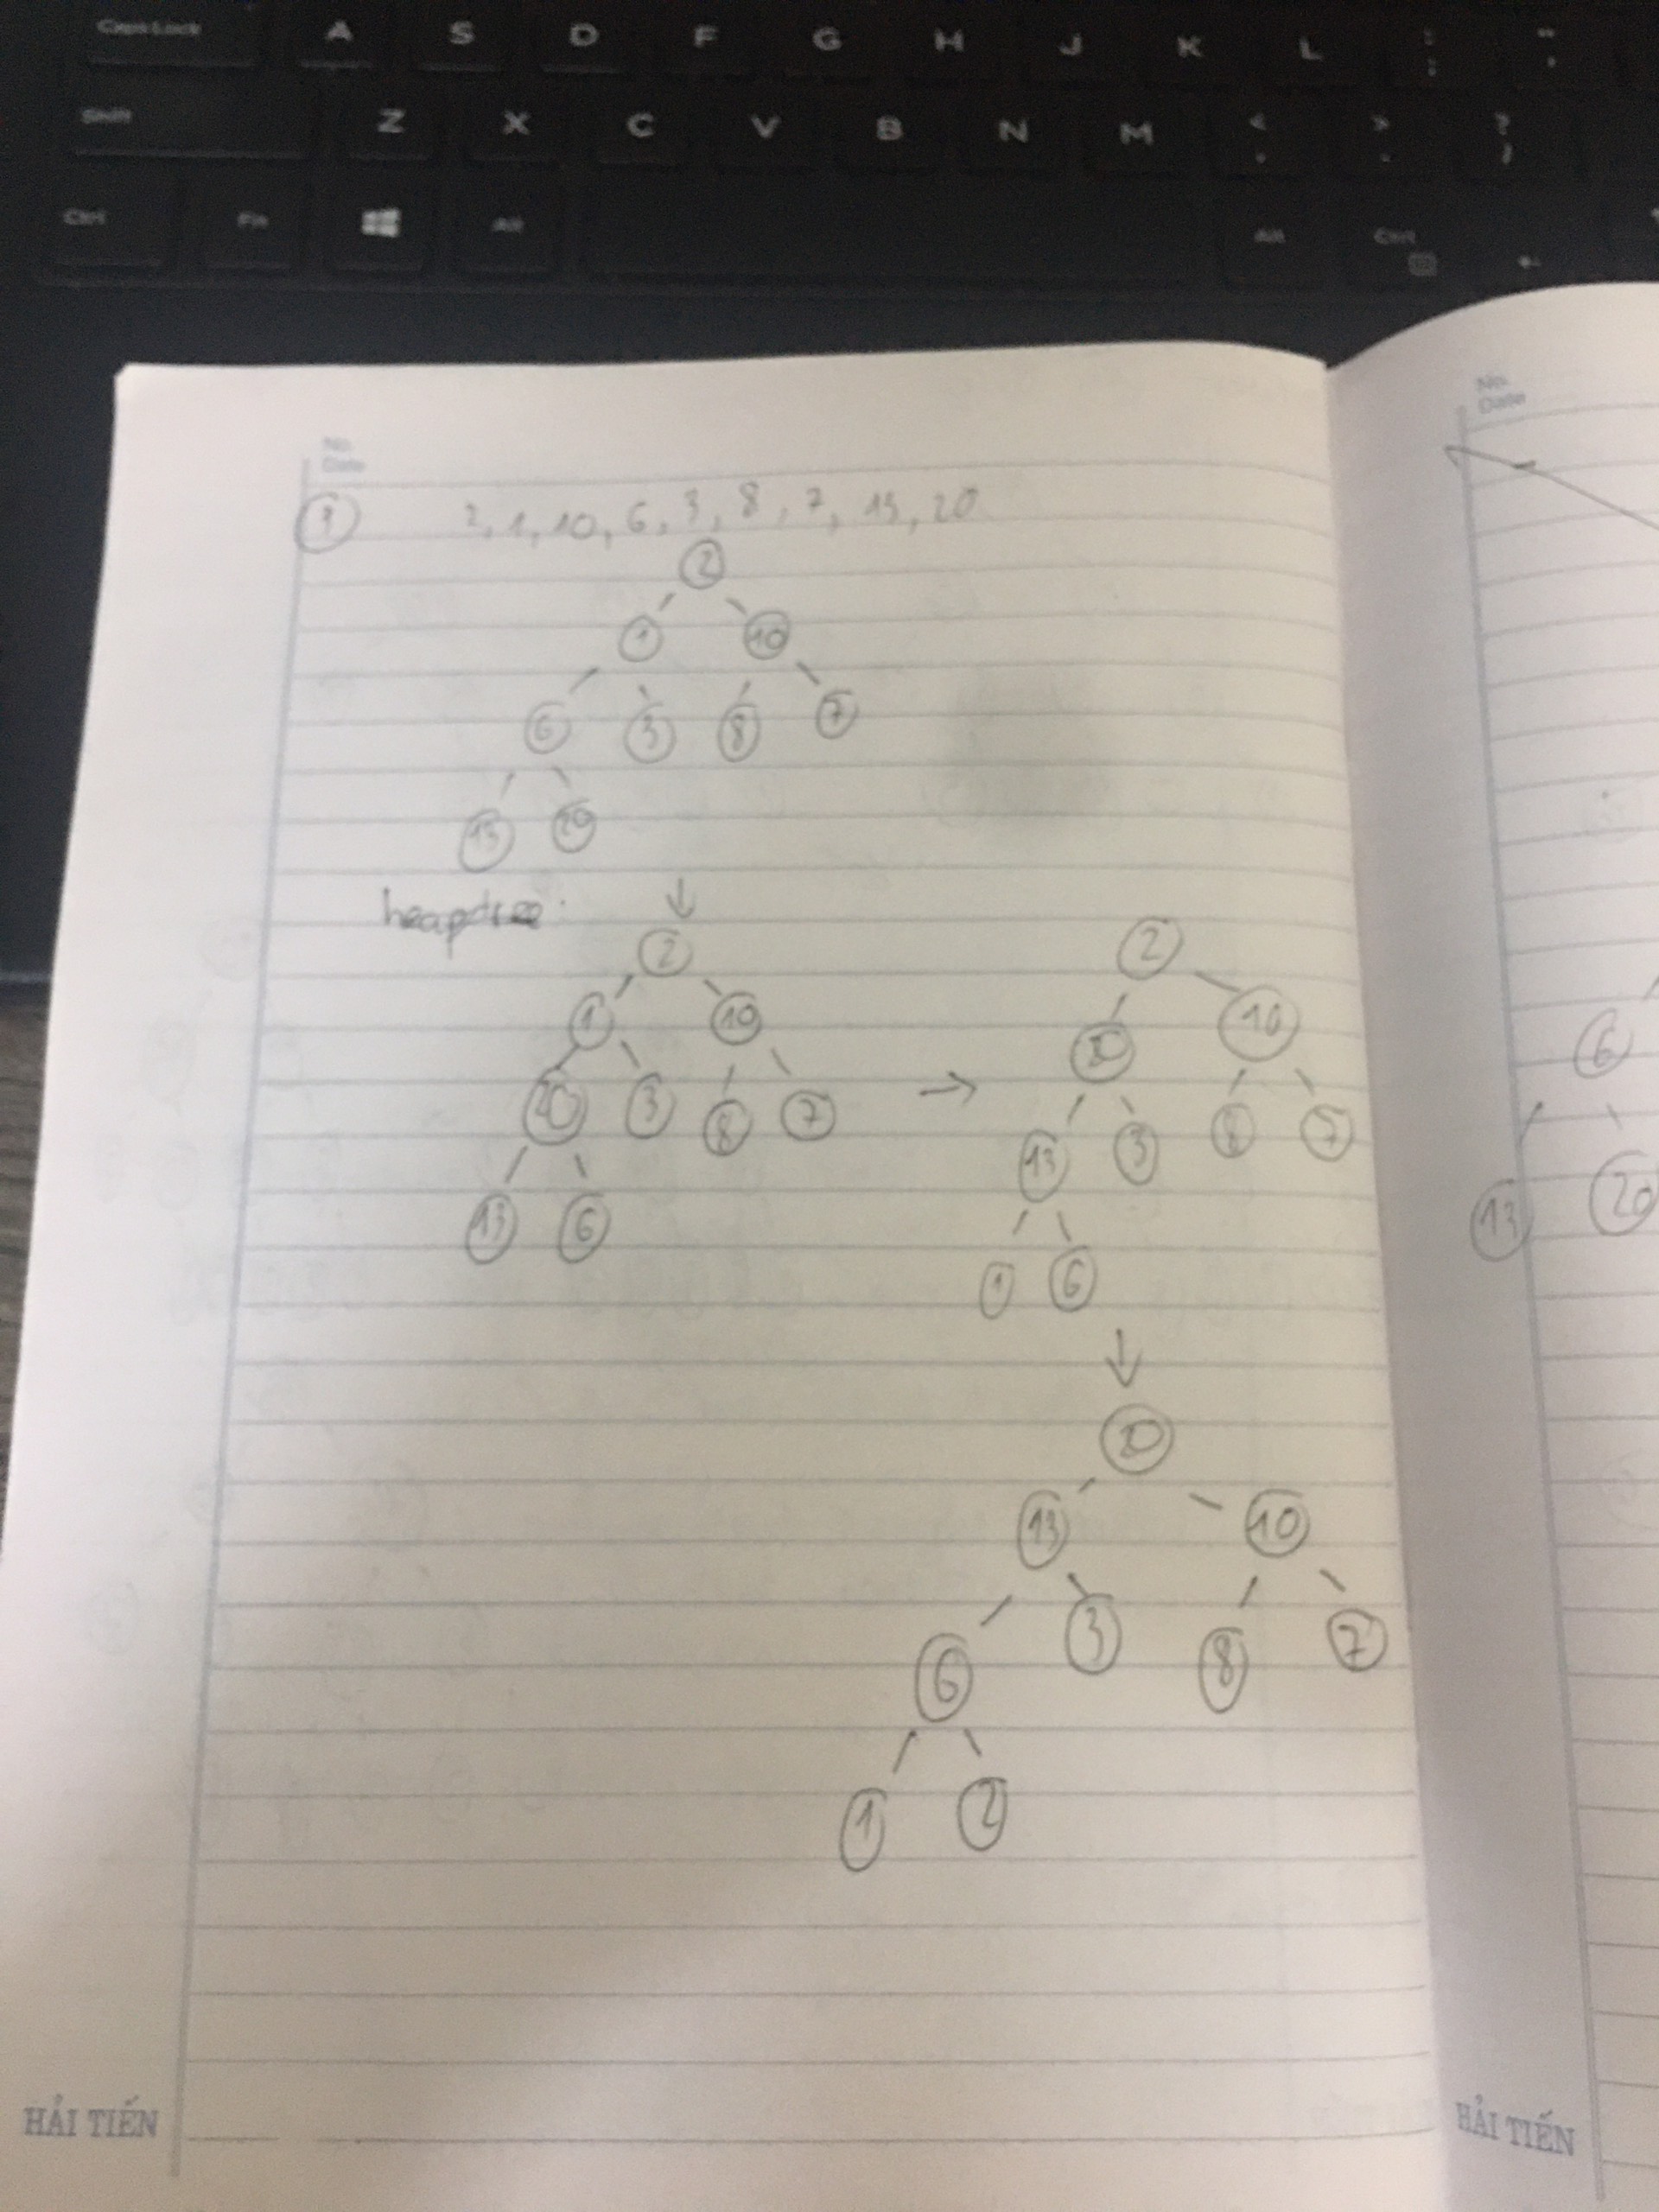 Caps Lock A S D F G H J K L : ; " '
Shift Z X C V B N M < , > . ? /
Ctrl Fn Alt Alt Ctrl
No.
Date
No.
Date
1 2, 1, 10, 6, 3, 8, 7, 13, 20
2
1 10
6 3 8 7
13 20
heaptree:
2
1 10
20 3 8 7
13 6
2
20 10
13 3 8 7
1 6
20
13 10
6 3 8 7
1 2
6
13 20
HẢI TIẾN
HẢI TIẾN